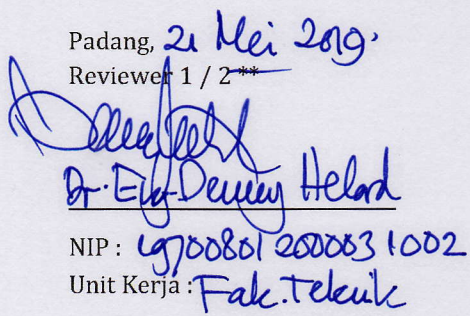 Padang, 21 Mei 2019.
Reviewer 1 / 2 **
Dr. Eng. Denny Helard
NIP : 197008012000031002
Unit Kerja : Fak. Teknik